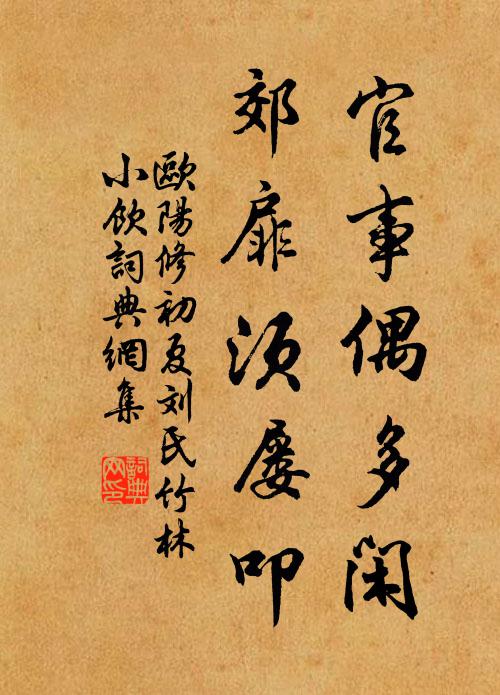 官事偶多閑
郊扉須屡叩
歐陽修初夏刘氏竹林
小飲詞典網集
詞典网印